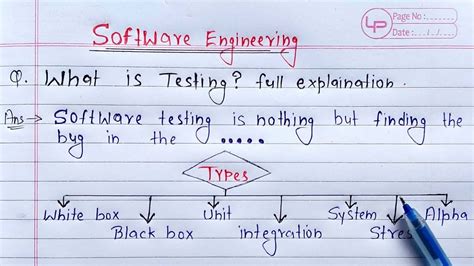 LP
Page No:.......
Date: .../.../...
Software Engineering
Q. What is Testing? full explaination.
Ans → Software testing is nothing but finding the
bug in the .....
Types
White box Unit System Alpha
Black box integration Stres